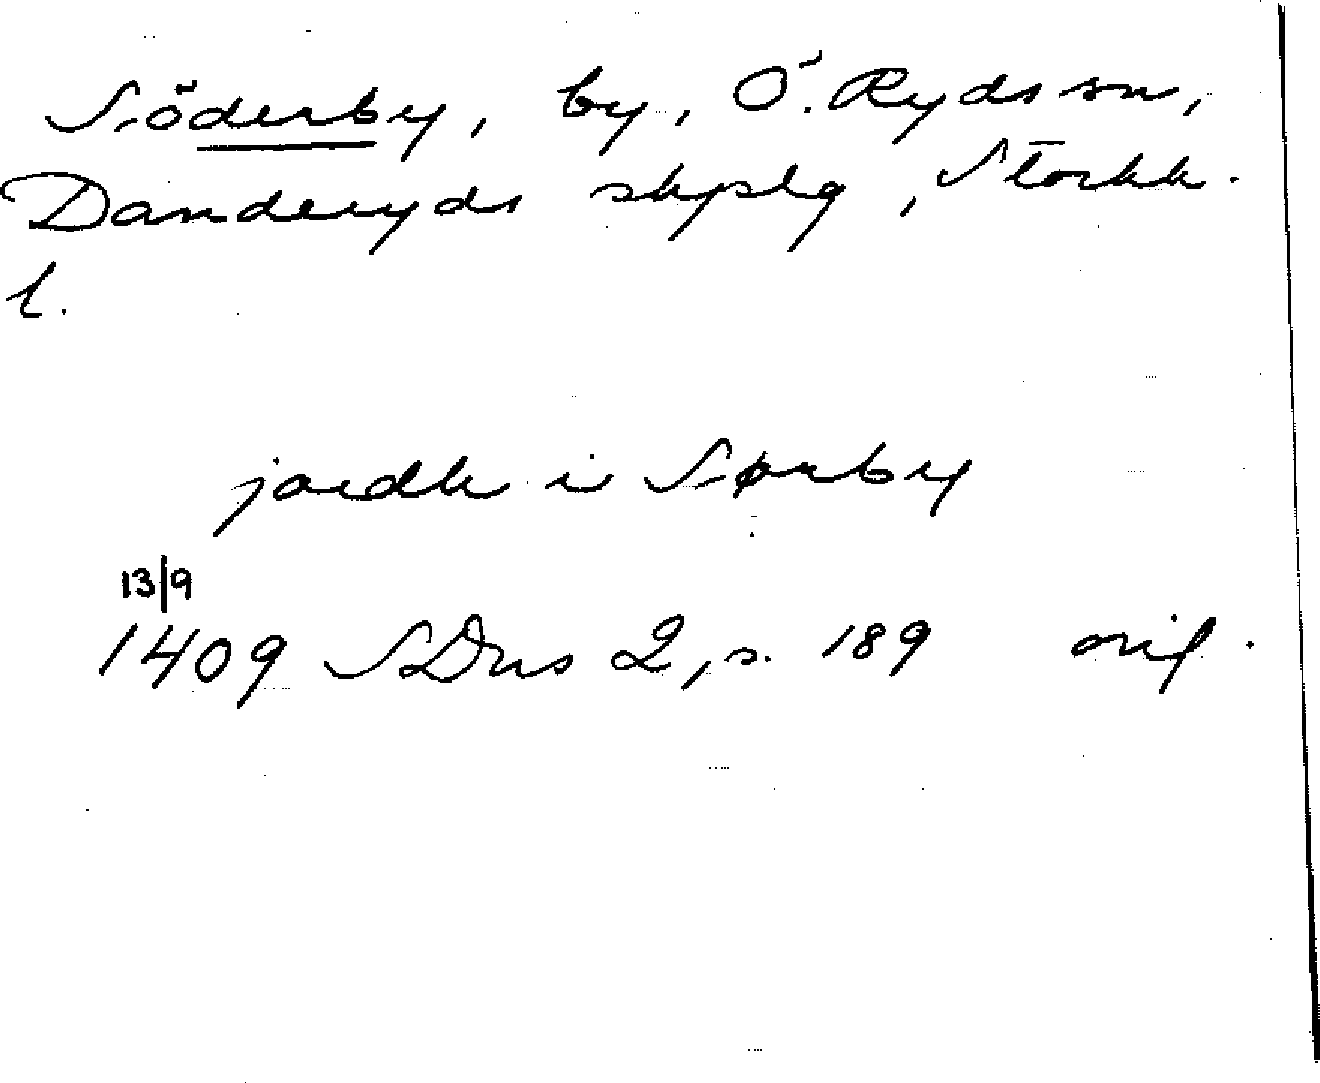 Söderby, by, Ö. Ryds sn,
Danderyds skpslg, Stockh.
l.
jordh i Sørby
13/9
1409 SDns 2, s. 189 orig.